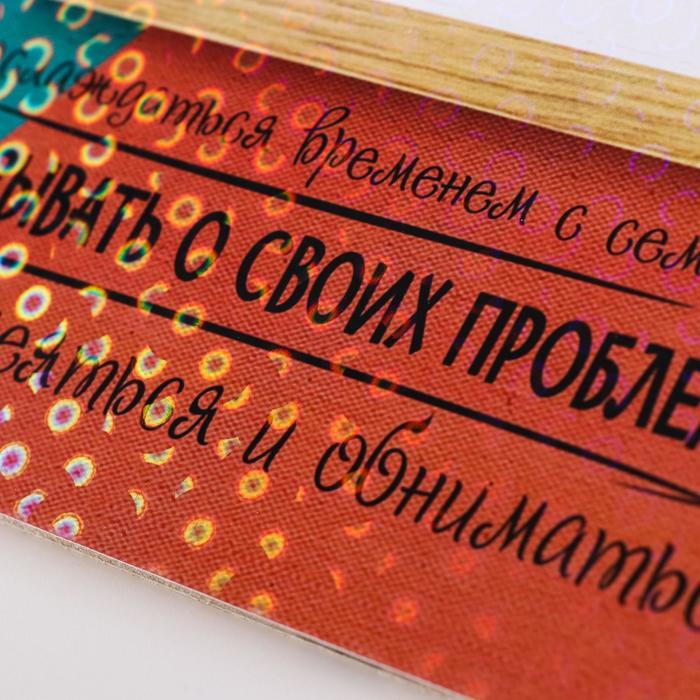 наслаждаться временем с сем
ЫВАТЬ О СВОИХ ПРОБЛЕ
еяться и обниматьс